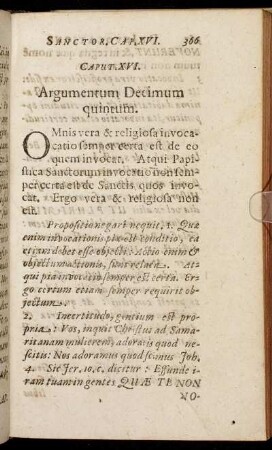 SANCTOR, CAP. XVI. 366
CAPUT. XVI.
Argumentum Decimum
quintum.
OMnis vera & religiosa invoca-
catio semper certa est de eo
quem invocat. Atqui Papi-
stica Sanctorum invocatio non sem-
per certa est de Sanctis quos invo-
cat. Ergo vera & religiosa non
est.
Propositio negari nequit. 1. Quæ
enim invocationis piæ est conditio, ea
et jus debet esse objecti: Actio enim &
objectum actionis, sunt relata. At-
qui pia invocatio semper est certa. Er-
go certum etiam semper requirit ob-
jectum.
2. Incertitudo, gentium est pro-
pria: Vos, inquit Christus ad Sama-
ritanam mulierem, adoratis quod ne-
scitis: Nos adoramus quod scimus Joh.
4. Sic Jer. 10. c. dicitur: Effunde i-
ram tuam in gentes QUÆ TE NON
NO-